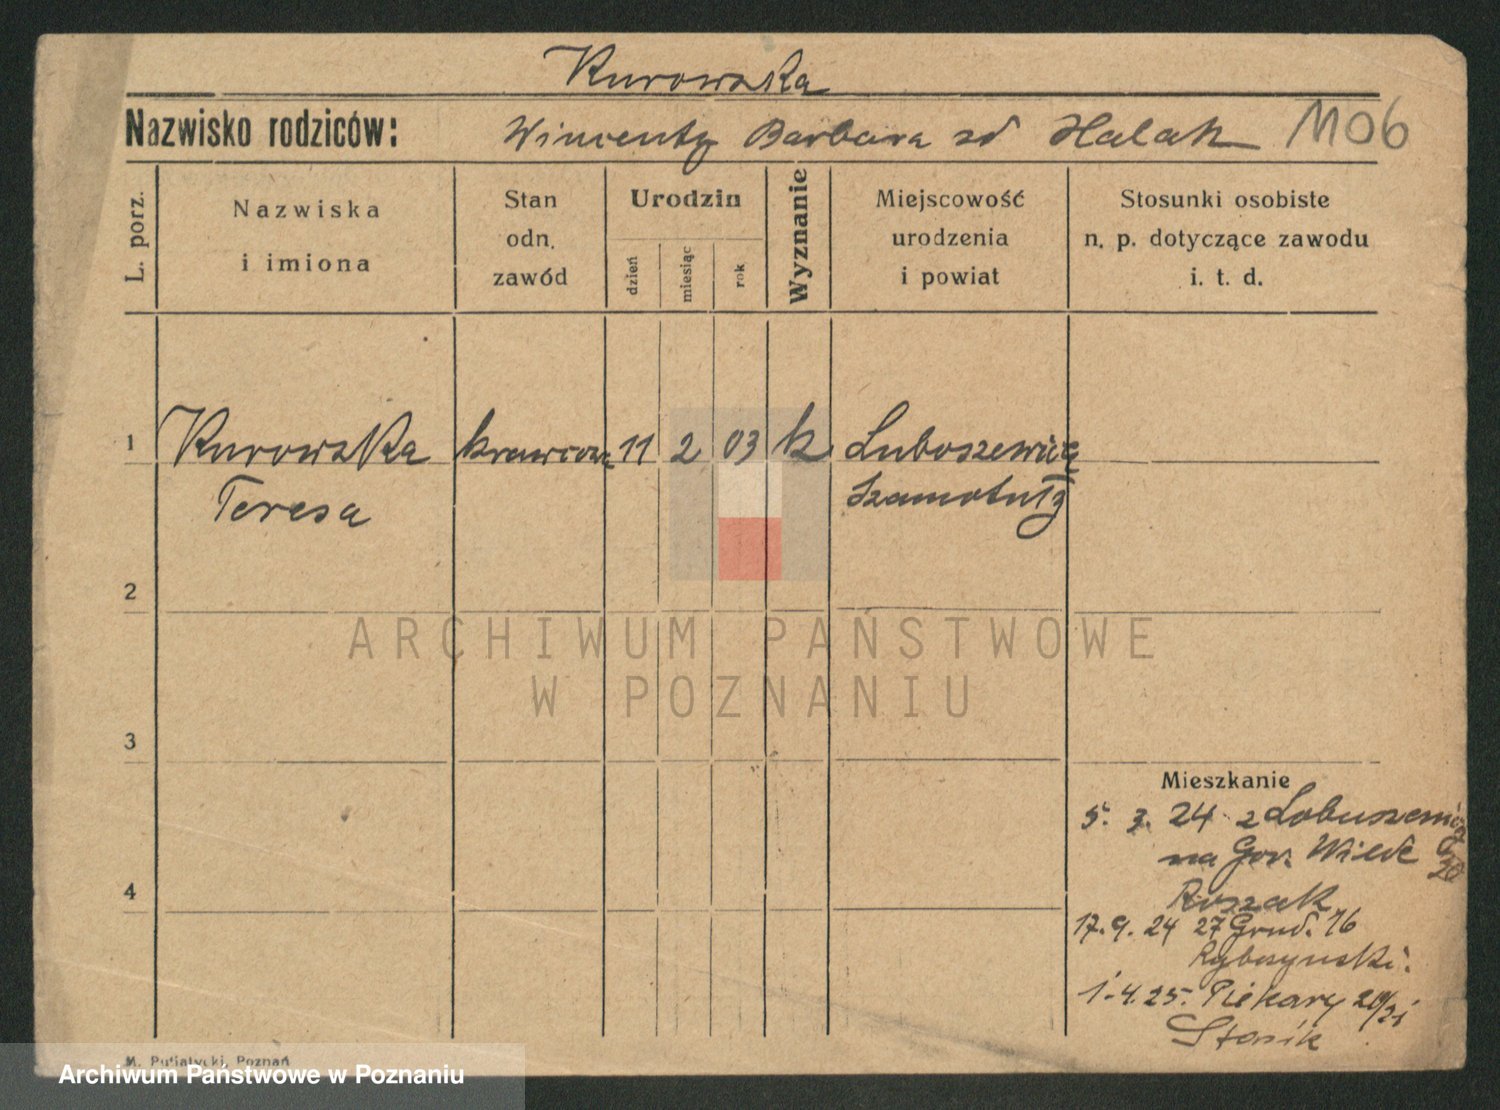 Kurowska
Nazwisko rodziców: Wincenty Barbara zd Halak 1106
L. porz.
Nazwiska
i imiona
Stan
odn.
zawód
Urodzin
dzień
miesiąc
rok
Wyznanie
Miejscowość
urodzenia
i powiat
Stosunki osobiste
n. p. dotyczące zawodu
i. t. d.
1 Kurowska krawcowa 11 2 03 k Luboszewicą
Teresa Szamotuły
2
3
4
Mieszkanie
5. 3. 24 z
na Gór. Wilde
Roszak
17. 9. 24 27 Grud. 16
Rybczynski.
1. 4. 25. Piekary 20/21
Stasik
M. Putiatycki, Poznań
ARCHIWUM PAŃSTWOWE
W POZNANIU
Archiwum Państwowe w Poznaniu